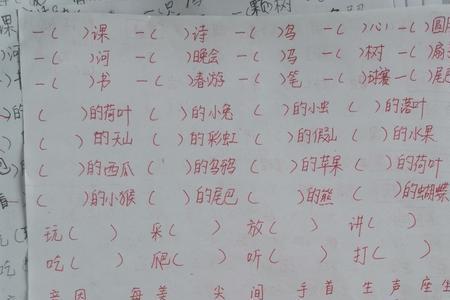 一( )课 一( )诗 一( )鸟 一( )心 一( )圆
一( )河 一( )晚会 一( )马 一( )树 一( )扇
一( )书 一( )春游 一( )笔 一( )球赛 一( )尾
( )的荷叶 ( )的小兔 ( )的小虫 ( )的落叶
( )的天山 ( )的彩虹 ( )的假山 ( )的水果
( )的西瓜 ( )的乌鸦 ( )的苹果 ( )的荷叶
( )的小猴 ( )的尾巴 ( )的熊 ( )的蝴蝶
玩( ) 采( ) 放( ) 讲( )
吃( ) 爬( ) 听( ) 打( )
间 手 首 生 声 座